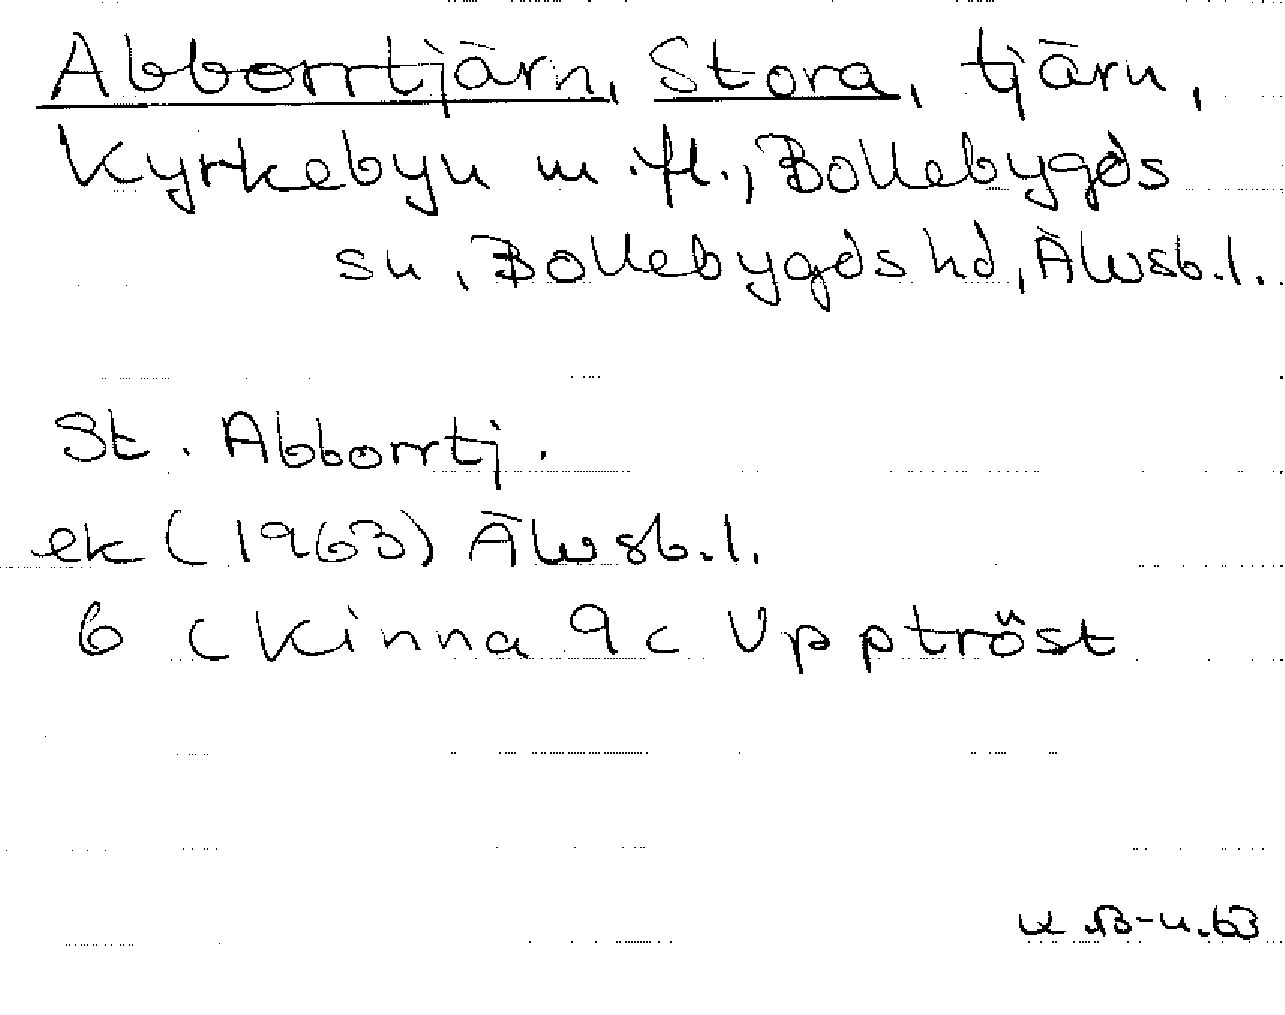 Abborrtjärn, Stora, tjärn,
Kyrkebyn m.fl., Bollebygds
sn, Bollebygds hd, Älvsb.l.
St. Abborrtj.
ek (1963) Älvsb.l.
6 C Kinna 9c Upptröst
K.B-n.63